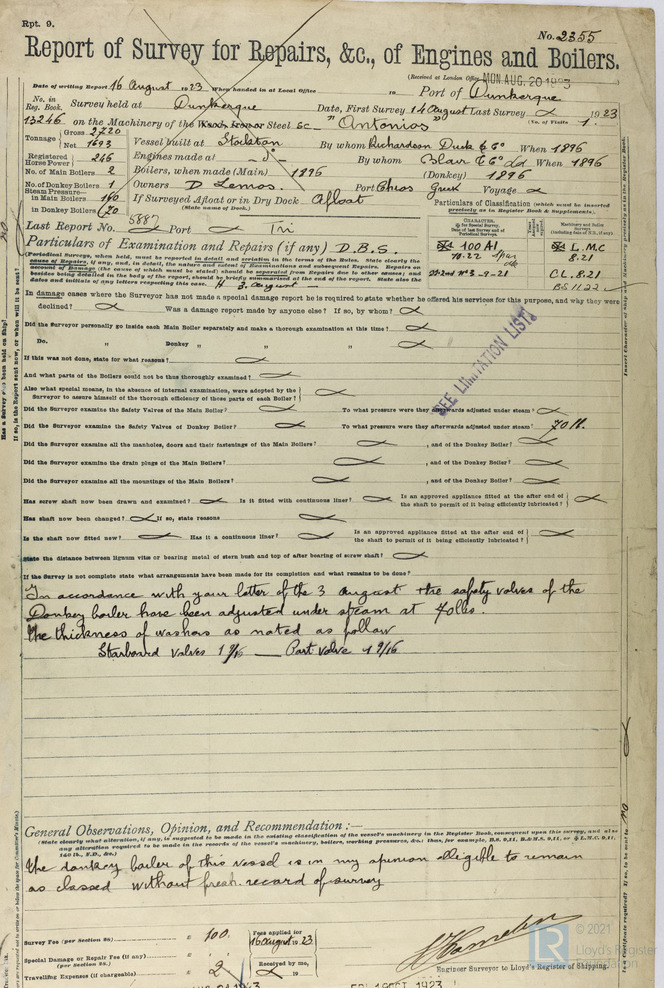 Rpt. 9.
No. 2355
Report of Survey for Repairs, &c., of Engines and Boilers.
(Received at London Office MON. AUG. 20 1923
Date of writing Report 16 August 1923 When handed in at Local Office 19 Port of Dunkerque
No. in Reg. Book. Survey held at Dunkerque Date, First Survey 14 August Last Survey 1923
13246 on the Machinery of the Wood, Iron or Steel Sc "Antonios" (No. of Visits 1)
Tonnage Gross 2720 Net 1693 Vessel built at Stockton By whom Richardson Duck & Co When 1896
Registered Horse Power 246 Engines made at Do By whom Blair & Co Ld When 1896
No. of Main Boilers 2 Boilers, when made (Main) 1896 (Donkey) 1896
No. of Donkey Boilers 1 Owners D. Lemos. Port Chios Greek Voyage
Steam Pressure—
in Main Boilers 160 If Surveyed Afloat or in Dry Dock Afloat
(State name of Dock.)
in Donkey Boilers 70
Particulars of Classification (which must be inserted precisely as in Register Book & Supplements).
Last Report No. 5887 Port
CHARACTER.
for Special Survey.
Date of last Survey and of Periodical Surveys.
Machinery and Boiler Surveys
(including date of N.B., if any)
100 A1
10.22
L.M.C
8.21
2nd No 3-9-21
CL. 8.21
BS 11.22
Particulars of Examination and Repairs (if any) D.B.S.
(Periodical Surveys, when held, must be reported in detail and seriatim in the terms of the Rules. State clearly the
cause of Repairs, if any, and, in detail, the nature and extent of Examinations and subsequent Repairs. Repairs on
account of Damage (the cause of which must be stated) should be separated from Repairs due to other causes; and
besides being detailed in the body of the report, should be briefly summarised at the end of the report. State also the
dates and initials of any letters respecting this case. H 3. August
In damage cases where the Surveyor has not made a special damage report he is required to state whether he offered his services for this purpose, and why they were
declined? Was a damage report made by anyone else? If so, by whom?
SEE LIMITATION LIST
Did the Surveyor personally go inside each Main Boiler separately and make a thorough examination at this time?
Do. " Donkey " " "
If this was not done, state for what reasons?
And what parts of the Boilers could not be thus thoroughly examined?
Also what special means, in the absence of internal examination, were adopted by the
Surveyor to assure himself of the thorough efficiency of those parts of each Boiler?
Did the Surveyor examine the Safety Valves of the Main Boiler? To what pressure were they afterwards adjusted under steam?
Did the Surveyor examine the Safety Valves of Donkey Boiler? To what pressure were they afterwards adjusted under steam? 70 lb.
Did the Surveyor examine all the manholes, doors and their fastenings of the Main Boilers? , and of the Donkey Boiler?
Did the Surveyor examine the drain plugs of the Main Boilers? , and of the Donkey Boiler?
Did the Surveyor examine all the mountings of the Main Boilers? , and of the Donkey Boiler?
Has screw shaft now been drawn and examined? Is it fitted with continuous liner? Is an approved appliance fitted at the after end of the shaft to permit of it being efficiently lubricated?
Has shaft now been changed? If so, state reasons
Is the shaft now fitted new? Has it a continuous liner? Is an approved appliance fitted at the after end of the shaft to permit of it being efficiently lubricated?
State the distance between lignum vitæ or bearing metal of stern bush and top of after bearing of screw shaft?
If the Survey is not complete state what arrangements have been made for its completion and what remains to be done?
In accordance with your letter of the 3 August the safety valves of the
Donkey boiler have been adjusted under steam at 70 lbs.
The thickness of washers as noted as follow
Starboard valves 1 9/16 — Port valve 1 9/16
General Observations, Opinion, and Recommendation:—
(State clearly what alteration, if any, is suggested to be made in the existing classification of the vessel's machinery in the Register Book, consequent upon this survey, and also
any alteration required to be made in the records of the vessel's machinery, boilers, working pressures, &c.: thus, for example, B.S. 9,11, B.&M.S. 9,11, or L.M.C. 9,11,
140 lb., F.D., &c.)
The donkey boiler of this vessel is in my opinion elligible to remain
as classed without fresh record of survey
Survey Fee (per Section 28) £ 100. Fees applied for
16 August 19 23
Special Damage or Repair Fee (if any) £
(per Section 28.)
Received by me,
Travelling Expenses (if chargeable) £ 2 19
Engineer Surveyor to Lloyd's Register of Shipping.
FRI. 19 OCT. 1923
© 2021
Lloyd's Register
Foundation